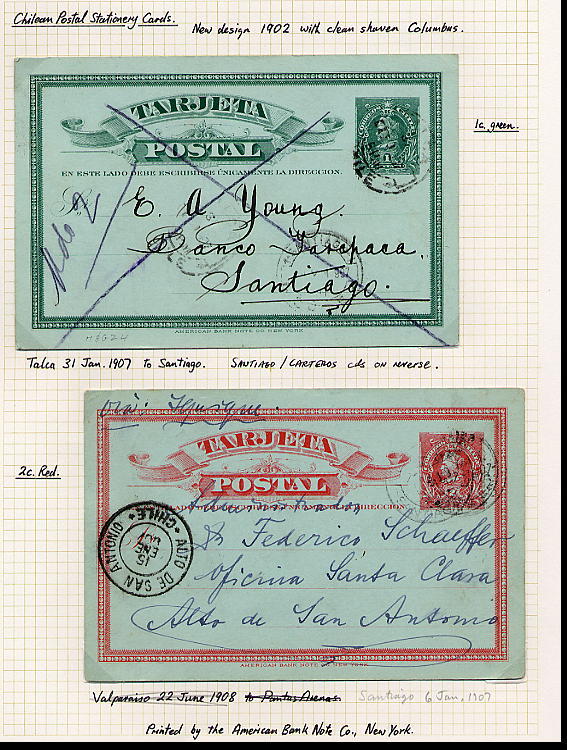 Chilean Postal Stationery Cards.
New design 1902 with clean shaven Columbus.
1c. green.
TARJETA
POSTAL
EN ESTE LADO DEBE ESCRIBIRSE ÚNICAMENTE LA DIRECCION.
E. A Young.
Banco Tarapaca.
Santiago.
AMERICAN BANK NOTE CO. NEW YORK
H&G24
Talca 31 Jan. 1907 to Santiago. SANTIAGO / CARTEROS cds on reverse.
2c. Red.
TARJETA
POSTAL
LADO DEBE ESCRIBIRSE ÚNICAMENTE LA DIRECCION
Federico Schaeffer
Oficina Santa Clara
Alto de San Antonio
ALTO DE SAN ANTONIO
CHILE
15
ENE
AMERICAN BANK NOTE CO. NEW YORK
Valparaiso 22 June 1908 to Puntas Arenas Santiago 6 Jan. 1907
Printed by the American Bank Note Co., New York.